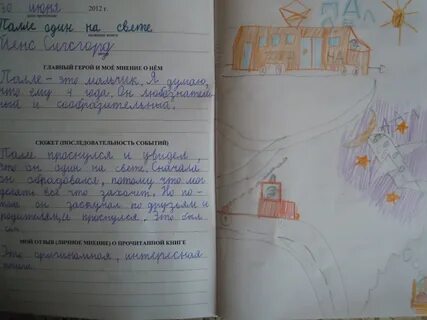 30 июня 2012 г.
Палле один на свете
Йенс Сигсгорд
ГЛАВНЫЙ ГЕРОЙ И МОЁ МНЕНИЕ О НЁМ
Палле – это мальчик. Я думаю,
что ему 4 года. Он любознатель
ный и сообразительный.
СЮЖЕТ (ПОСЛЕДОВАТЕЛЬНОСТЬ СОБЫТИЙ)
Палле проснулся и увидел,
что он один на свете. Сначала
он обрадовался, потому что мог
делать всё что захочет. Но по-
том он заскучал по друзьям и
родителям, и проснулся. Это был
сон.
МОЙ ОТЗЫВ (ЛИЧНОЕ МНЕНИЕ) О ПРОЧИТАННОЙ КНИГЕ
Это оригинальная, интересная
книга.